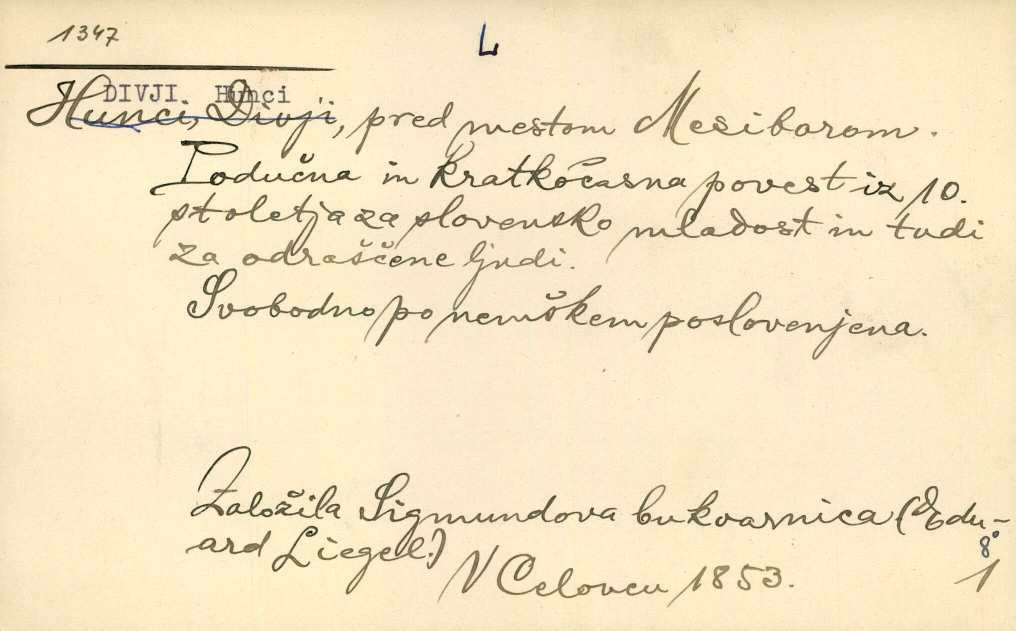 1347
L
DIVJI Hunci
Hunci, Divji, pred mestom Mesiborom.
Podučna in kratkočasna povest iz 10.
stoletja za slovensko mladost in tudi
za odraščene ljudi.
Svobodno po nemškem poslovenjena.
Založila Sigmundova bukvarnica (Edu-
ard Liegel.)
8°
V Celovcu 1853.
1